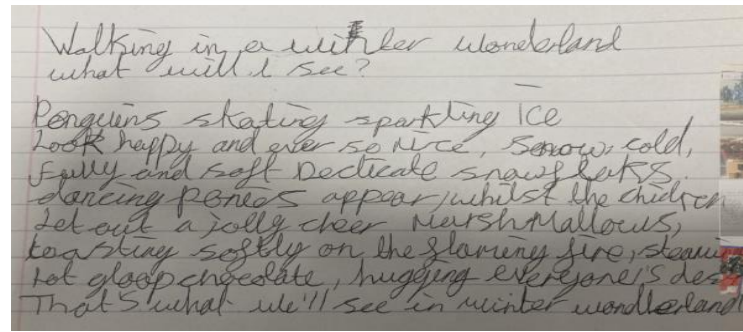 Walking in a winter wonderland
what will I see?
Penguins skating sparkling ice
Look happy and ever so nice, snow, cold,
Fully and soft Decticate snowflaks.
dancing Ponies appear, whilst the chidren
Let out a jolly cheer Marshmallows,
toasting softly on the flaming fire, steami
hot gloop chocolate, hugging everyone's des
That's what we'll see in winter wonderland